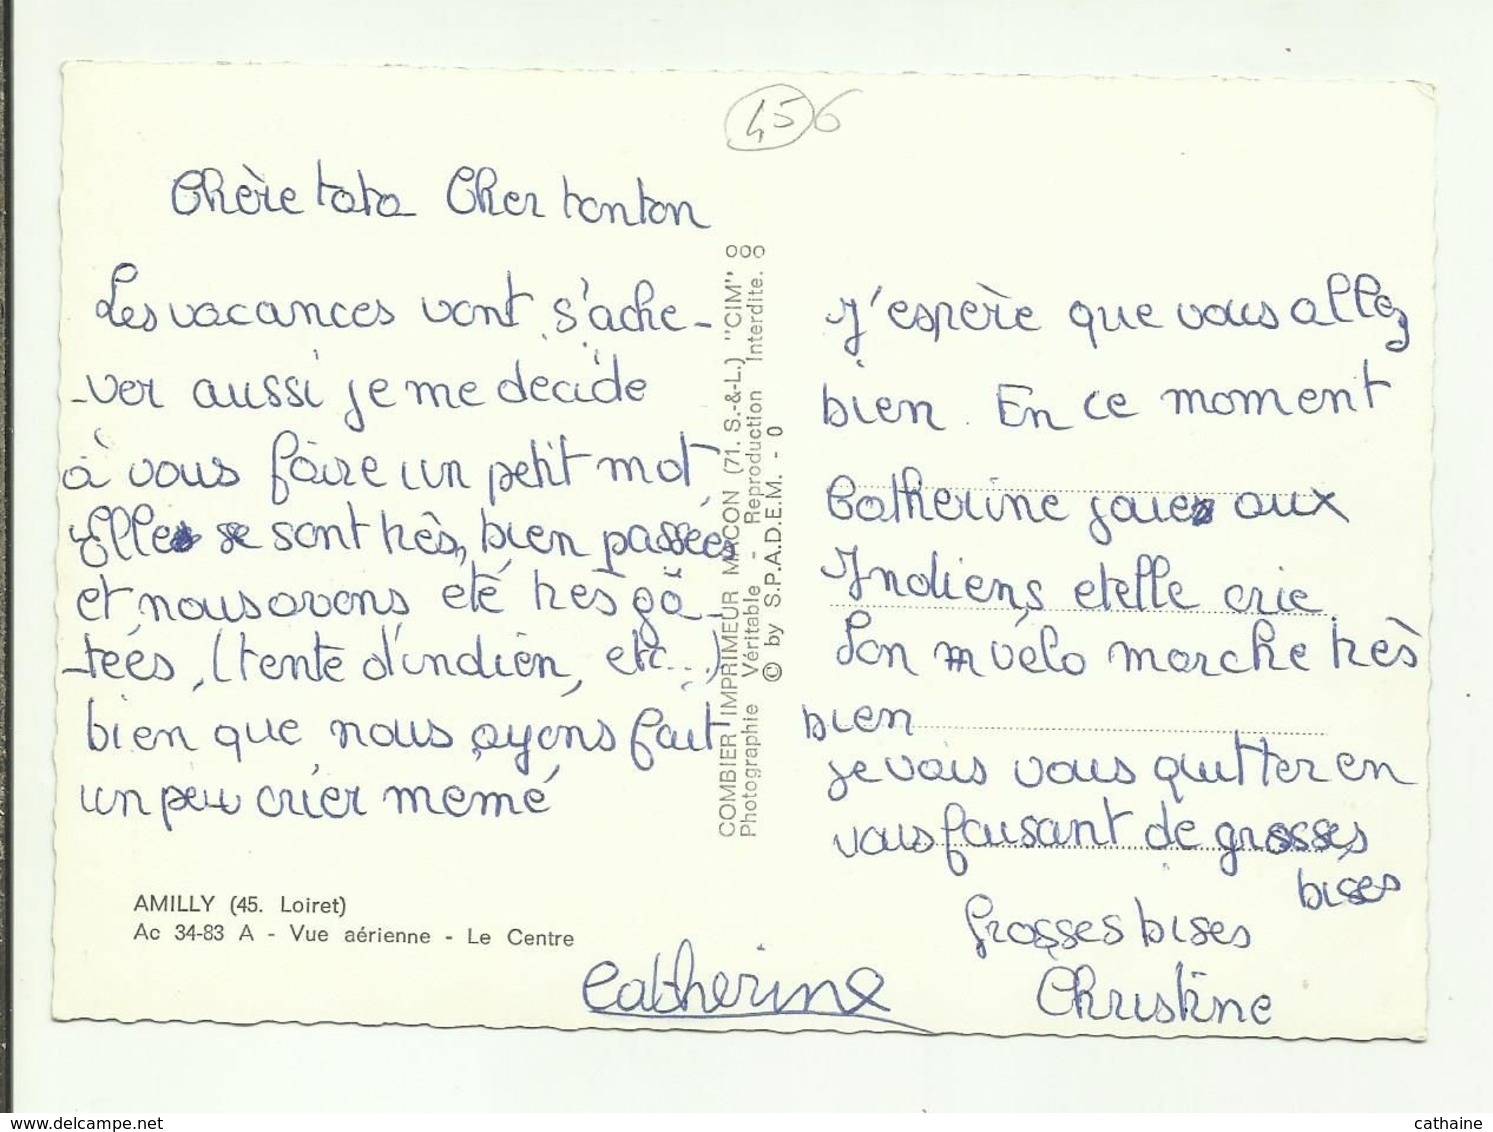 45 6
Chère tata Cher tonton
Les vacances vont s'ache-
-ver aussi je me décide
à vous faire un petit mot
Elles se sont très bien passées
et nous avons été très gâ-
-tées, (tente d'indien, etc...)
bien que nous ayons fait
un peu crier mémé
AMILLY (45. Loiret)
Ac 34-83 A - Vue aérienne - Le Centre
COMBIER IMPRIMEUR MACON (71. S.-&-L.) "CIM"
Photographie Véritable - Reproduction Interdite.
© by S.P.A.D.E.M. - 0
J'espère que vous allez
bien. En ce moment
Catherine joue aux
Indiens et elle crie
Son vélo marche très
bien
je vais vous quitter en
vous faisant de grosses
bises
Grosses bises
Catherine Christine
www.delcampe.net
cathaine